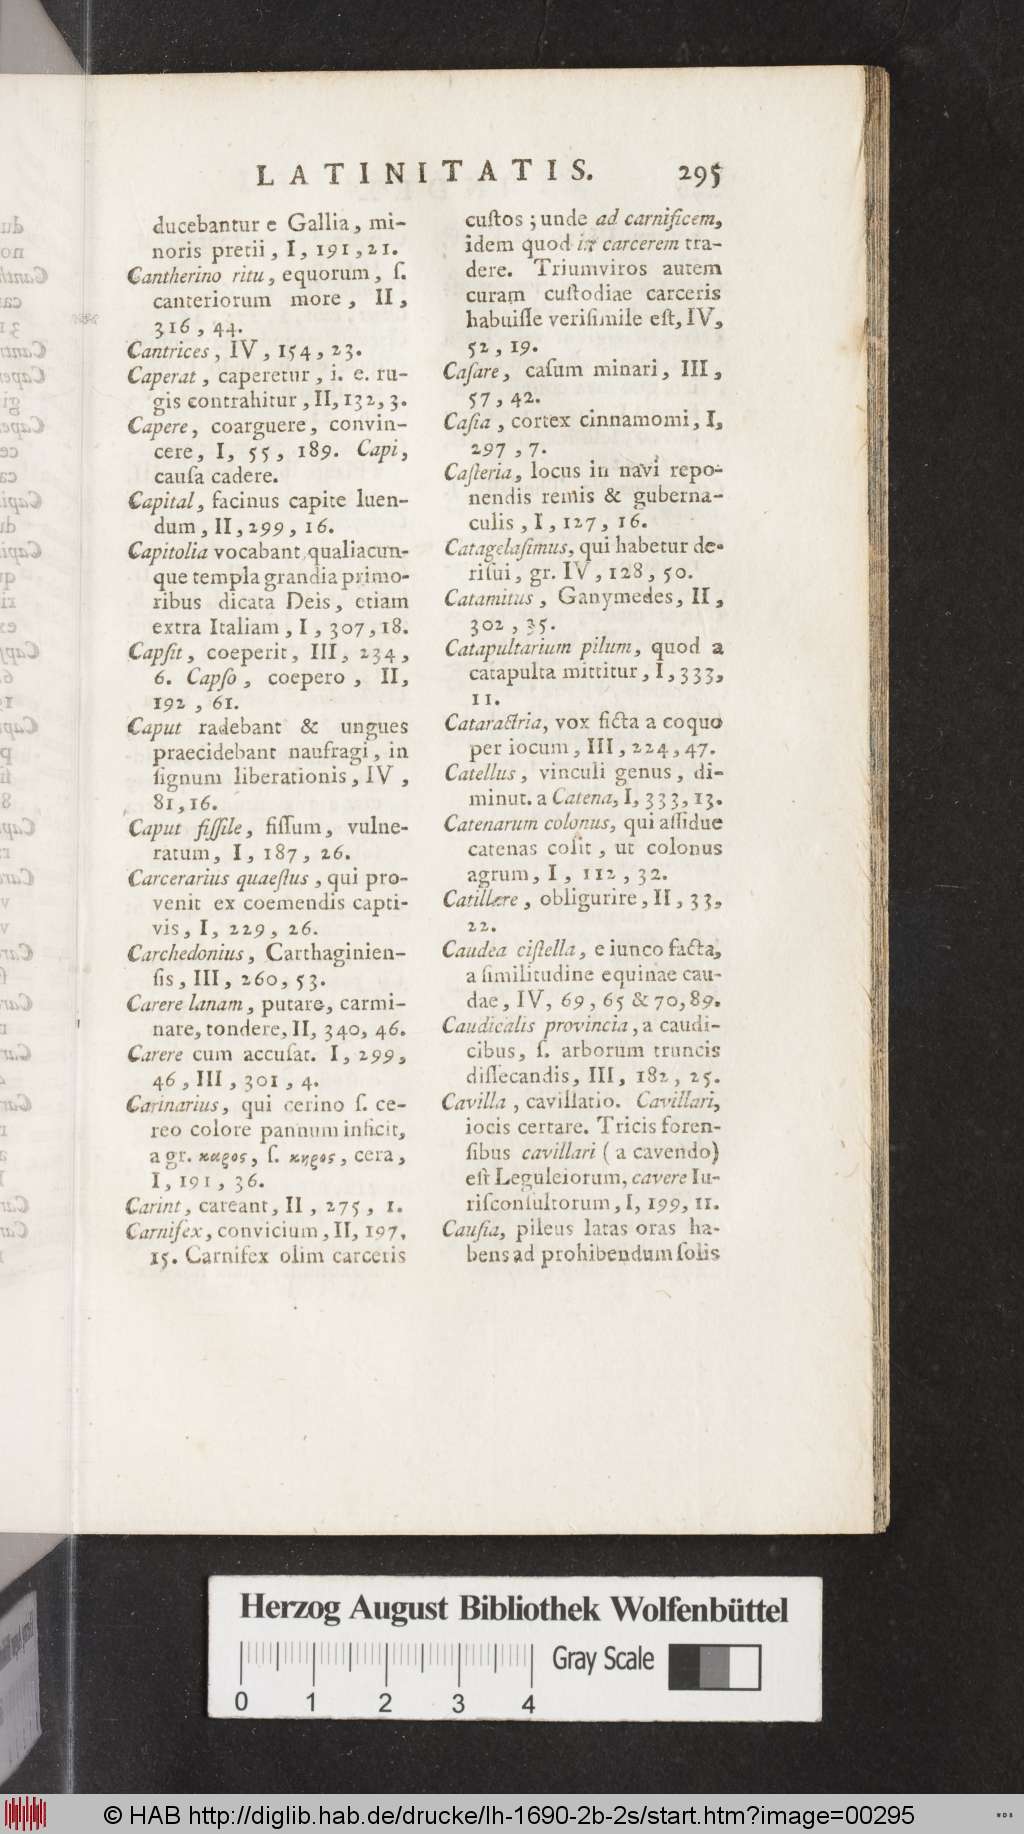 LATINITATIS. 295
ducebantur e Gallia, mi-
noris pretii, I, 191, 21.
Cantherino ritu, equorum, ſ.
canteriorum more, II,
316, 44.
Cantrices, IV, 154, 23.
Caperat, caperetur, i. e. ru-
gis contrahitur, II, 132, 3.
Capere, coarguere, convin-
cere, I, 55, 189. Capi,
cauſa cadere.
Capital, facinus capite luen-
dum, II, 299, 16.
Capitolia vocabant qualiacun-
que templa grandia primo-
ribus dicata Deis, etiam
extra Italiam, I, 307, 18.
Capſit, coeperit, III, 234,
6. Capſo, coepero, II,
192, 61.
Caput radebant & ungues
praecidebant naufragi, in
ſignum liberationis, IV,
81, 16.
Caput fiſſile, fiſſum, vulne-
ratum, I, 187, 26.
Carcerarius quaeſtus, qui pro-
venit ex coemendis capti-
vis, I, 229, 26.
Carchedonius, Carthaginien-
ſis, III, 260, 53.
Carere lanam, putare, carmi-
nare, tondere, II, 340, 46.
Carere cum accuſat. I, 299,
46, III, 301, 4.
Carinarius, qui cerino ſ. ce-
reo colore pannum inficit,
a gr. καρος, ſ. κηρος, cera,
I, 191, 36.
Carint, careant, II, 275, 1.
Carnifex, convicium, II, 197,
15. Carnifex olim carceris
cuſtos; unde ad carnificem,
idem quod in carcerem tra-
dere. Triumviros autem
curam cuſtodiae carceris
habuiſſe veriſimile eſt, IV,
52, 19.
Caſare, caſum minari, III,
57, 42.
Caſia, cortex cinnamomi, I,
297, 7.
Caſteria, locus in navi repo-
nendis remis & guberna-
culis, I, 127, 16.
Catagelaſimus, qui habetur de-
riſui, gr. IV, 128, 50.
Catamitus, Ganymedes, II,
302, 35.
Catapultarium pilum, quod a
catapulta mittitur, I, 333,
11.
Cataractria, vox ficta a coquo
per iocum, III, 224, 47.
Catellus, vinculi genus, di-
minut. a Catena, I, 333, 13.
Catenarum colonus, qui aſſidue
catenas coſit, ut colonus
agrum, I, 112, 32.
Catillare, obligurire, II, 33,
22.
Caudea ciſtella, e iunco facta,
a ſimilitudine equinae cau-
dae, IV, 69, 65 & 70, 89.
Caudicalis provincia, a caudi-
cibus, ſ. arborum truncis
diſſecandis, III, 182, 25.
Cavilla, cavillatio. Cavillari,
iocis certare. Tricis foren-
ſibus cavillari (a cavendo)
eſt Leguleiorum, cavere Iu-
riſconſultorum, I, 199, 11.
Cauſia, pileus latas oras ha-
bens ad prohibendum ſolis
Herzog August Bibliothek Wolfenbüttel
Gray Scale
0 1 2 3 4
© HAB http://diglib.hab.de/drucke/lh-1690-2b-2s/start.htm?image=00295